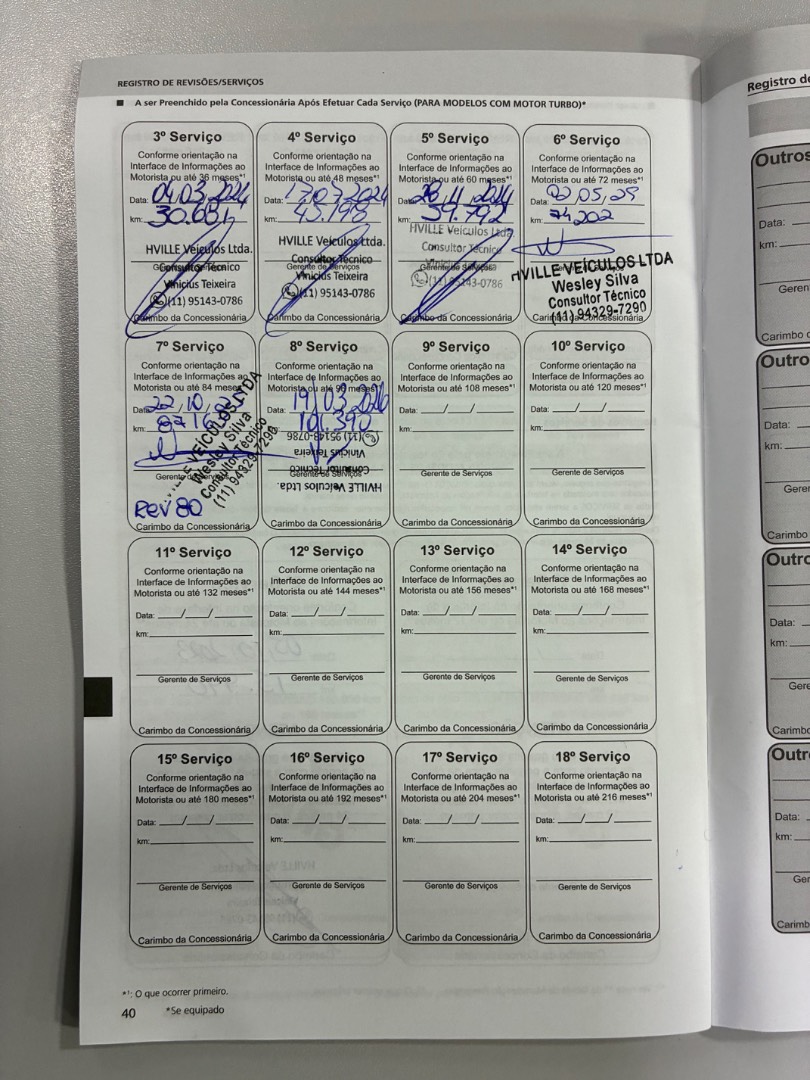 REGISTRO DE REVISÕES/SERVIÇOS
■ A ser Preenchido pela Concessionária Após Efetuar Cada Serviço (PARA MODELOS COM MOTOR TURBO)*
3º Serviço
Conforme orientação na
Interface de Informações ao
Motorista ou até 36 meses*¹
Data: 04/03/2024
km: 30.651
HVILLE Veículos Ltda.
Gerente de Serviços
Consultor Técnico
Vinicius Teixeira
(11) 95143-0786
Carimbo da Concessionária
4º Serviço
Conforme orientação na
Interface de Informações ao
Motorista ou até 48 meses*¹
Data: 17/07/2024
km:
HVILLE Veículos Ltda.
Consultor Técnico
Gerente de Serviços
Vinicius Teixeira
(11) 95143-0786
Carimbo da Concessionária
5º Serviço
Conforme orientação na
Interface de Informações ao
Motorista ou até 60 meses*¹
Data: 11
km: 59.792
HVILLE Veículos Ltda
Consultor Técnico
Gerente de Serviços
(11) 95143-0786
Carimbo da Concessionária
6º Serviço
Conforme orientação na
Interface de Informações ao
Motorista ou até 72 meses*¹
Data: 02/05/25
km: 74,202
HVILLE VEÍCULOS LTDA
Wesley Silva
Consultor Técnico
(11) 94329-7290
Carimbo da Concessionária
7º Serviço
Conforme orientação na
Interface de Informações ao
Motorista ou até 84 meses*¹
Data: 22/10/
km:
HVILLE VEÍCULOS LTDA
Wesley Silva
Consultor Técnico
(11) 94329-7290
Gerente de Serviços
Rev 80
Carimbo da Concessionária
8º Serviço
Conforme orientação na
Interface de Informações ao
Motorista ou até 96 meses*¹
Data: 19/03/2026
km: 101.390
(11) 95143-0786
Vinicius Teixeira
Consultor Técnico
Gerente de Serviços
HVILLE Veículos Ltda.
Carimbo da Concessionária
9º Serviço
Conforme orientação na
Interface de Informações ao
Motorista ou até 108 meses*¹
Data: ___/___/______
km:
Gerente de Serviços
Carimbo da Concessionária
10º Serviço
Conforme orientação na
Interface de Informações ao
Motorista ou até 120 meses*¹
Data: ___/___/______
km:
Gerente de Serviços
Carimbo da Concessionária
11º Serviço
Conforme orientação na
Interface de Informações ao
Motorista ou até 132 meses*¹
Data: ___/___/______
km:
Gerente de Serviços
Carimbo da Concessionária
12º Serviço
Conforme orientação na
Interface de Informações ao
Motorista ou até 144 meses*¹
Data: ___/___/______
km:
Gerente de Serviços
Carimbo da Concessionária
13º Serviço
Conforme orientação na
Interface de Informações ao
Motorista ou até 156 meses*¹
Data: ___/___/______
km:
Gerente de Serviços
Carimbo da Concessionária
14º Serviço
Conforme orientação na
Interface de Informações ao
Motorista ou até 168 meses*¹
Data: ___/___/______
km:
Gerente de Serviços
Carimbo da Concessionária
15º Serviço
Conforme orientação na
Interface de Informações ao
Motorista ou até 180 meses*¹
Data: ___/___/______
km:
Gerente de Serviços
Carimbo da Concessionária
16º Serviço
Conforme orientação na
Interface de Informações ao
Motorista ou até 192 meses*¹
Data: ___/___/______
km:
Gerente de Serviços
Carimbo da Concessionária
17º Serviço
Conforme orientação na
Interface de Informações ao
Motorista ou até 204 meses*¹
Data: ___/___/______
km:
Gerente de Serviços
Carimbo da Concessionária
18º Serviço
Conforme orientação na
Interface de Informações ao
Motorista ou até 216 meses*¹
Data: ___/___/______
km:
Gerente de Serviços
Carimbo da Concessionária
*¹: O que ocorrer primeiro.
40 *Se equipado
Registro d
Outros
Data:
km:
Geren
Carimbo
Outro
Data:
km:
Geren
Carimbo
Outro
Data:
km:
Gere
Carimbo
Outr
Data:
km:
Ger
Carimb